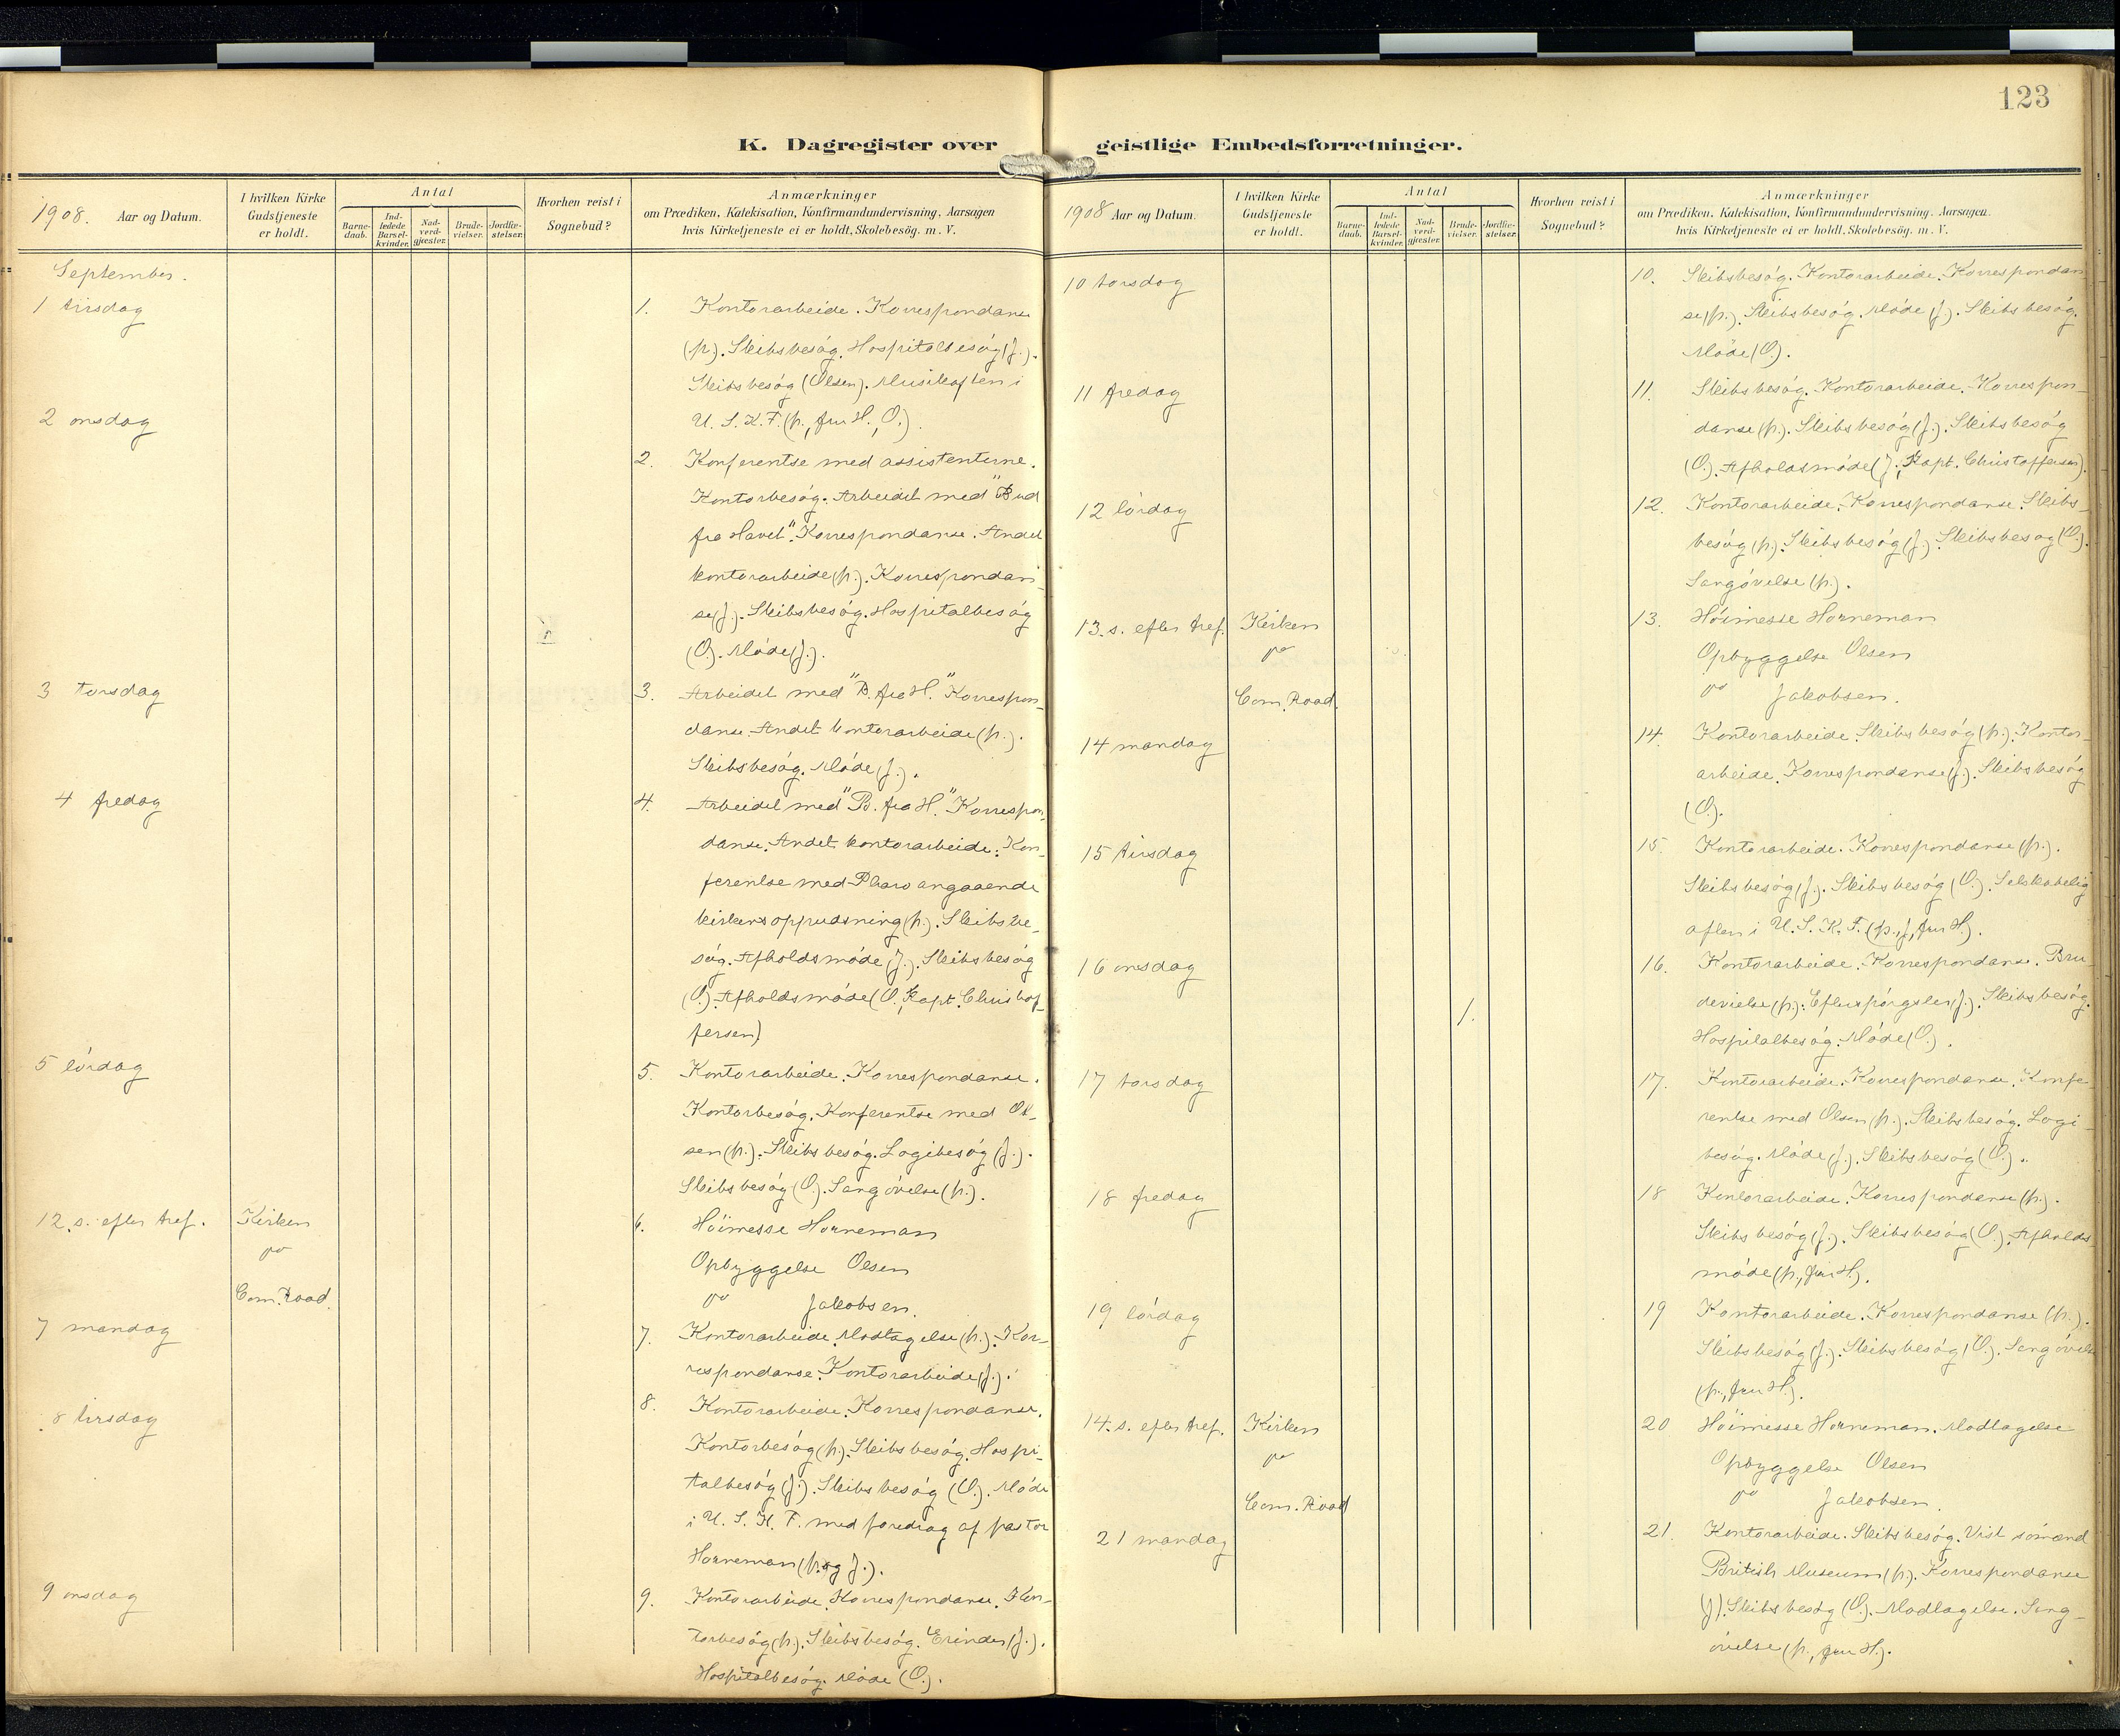 123
K. Dagregister over geistlige Embedsforretninger.
1908. Aar og Datum.
I hvilken Kirke Gudstjeneste er holdt.
Antal
Barne-daab.
Ind-ledede Barsel-kvinder.
Nad-verd-gjæster.
Brude-vielser.
Jordfæ-stelser.
Hvorhen reist i Sognebud?
Anmærkninger
om Prædiken, Katekisation, Konfirmandundervisning, Aarsagen
hvis Kirketjeneste ei er holdt, Skolebesøg. m. V.
September.
1 tirsdag
1. Kontorarbeide. Korrespondanse
(p.). Skibsbesøg. Hospitalbesøg (J.).
Skibsbesøg (Olsen). Musikaften i
U. S. K. F. (p., fru H., O.).
2 onsdag
2. Konferentse med assistenterne.
Kontorbesøg. Arbeidet med "Bud
fra Havet". Korrespondanse. Andet
kontorarbeide (p.). Korrespondan-
se (J.). Skibsbesøg. Hospitalbesøg
(O.). Møde (J.).
3 torsdag
3. Arbeidet med "B. fra H." Korrespon-
danse. Andet kontorarbeide (p.).
Skibsbesøg. Møde (J.).
4 fredag
4. Arbeidet med "B. fra H." Korrespon-
danse. Andet kontorarbeide. Kon-
ferentse med Pharo angaaende
kirkens oppudsning (p.). Skibsbe-
søg. Afholdsmøde (J.). Skibsbesøg
(O.). Afholdsmøde (O., Kapt. Christof-
fersen)
5 lørdag
5. Kontorarbeide. Korrespondanse.
Kontorbesøg. Konferentse med Ol-
sen (p.). Skibsbesøg. Logibesøg (J.).
Skibsbesøg (O.). Sangøvelse (p.).
12. s. efter tref.
Kirken
po
Com. Road.
6. Høimesse Horneman
Opbyggelse Olsen
po Jakobsen.
7 mandag
7. Kontorarbeide. Modtagelse (p.). Kor-
respondanse. Kontorarbeide (J.).
8 tirsdag
8. Kontorarbeide. Korrespondanse.
Kontorbesøg (p.). Skibsbesøg. Hospi-
talbesøg (J.). Skibsbesøg (O.). Møde
i U. S. K. F. med foredrag af pastor
Horneman (p. og J.).
9 onsdag
9. Kontorarbeide. Korrespondanse. Kon-
torbesøg (p.). Skibsbesøg. Erinder (J.).
Hospitalbesøg. Møde (O.).
1908 Aar og Datum.
I hvilken Kirke Gudstjeneste er holdt.
Antal
Barne-daab.
Ind-ledede Barsel-kvinder.
Nad-verd-gjæster.
Brude-vielser.
Jordfæ-stelser.
Hvorhen reist i Sognebud?
Anmærkninger
om Prædiken, Katekisation, Konfirmandundervisning, Aarsagen.
hvis Kirketjeneste ei er holdt, Skolebesøg. m. V.
10 torsdag
10. Skibsbesøg. Kontorarbeide. Korrespondan
se (p.). Skibsbesøg. Møde (J.). Skibsbesøg.
Møde (O.).
11 fredag
11. Skibsbesøg. Kontorarbeide. Korrespon-
danse (p.). Skibsbesøg (J.). Skibsbesøg
(O.). Afholdsmøde (J., Kapt. Christoffersen).
12 lørdag
12. Kontorarbeide. Korrespondanse. Skibs-
besøg (p.). Skibsbesøg (J.). Skibsbesøg (O.).
Sangøvelse (p.).
13. s. efter tref.
Kirken
po
Com. Road.
13. Høimesse Horneman
Opbyggelse Olsen
po Jakobsen.
14 mandag
14. Kontorarbeide. Skibsbesøg (p.). Kontor-
arbeide. Korrespondanse (J.). Skibsbesøg
(O.).
15 tirsdag
15. Kontorarbeide. Korrespondanse (p.).
Skibsbesøg (J.). Skibsbesøg (O.). Selskabelig
aften i U. S. K. F. (p., J., fru H.).
16 onsdag
1.
16. Kontorarbeide. Korrespondanse. Bru-
devielse (p.). Efterspørgsler (J.). Skibsbesøg.
Hospitalbesøg. Møde (O.).
17 torsdag
17. Kontorarbeide. Korrespondanse. Konfe
rentse med Olsen (p.). Skibsbesøg. Logi-
besøg. Møde (J.). Skibsbesøg (O.).
18 fredag
18 Kontorarbeide. Korrespondanse (p.).
Skibsbesøg (J.). Skibsbesøg (O.). Afholds-
møde (p., fru H.).
19 lørdag
19 Kontorarbeide. Korrespondanse (p.).
Skibsbesøg (J.). Skibsbesøg (O.). Sangøvelse
(p., fru H.).
14. s. efter tref.
Kirken
po
Com. Road
20 Høimesse Horneman. Modtagelse
Opbyggelse Olsen
po Jakobsen.
21 mandag
21. Kontorarbeide. Skibsbesøg. Vist sømænd
British Museum (p.). Korrespondanse
(J.). Skibsbesøg (O.). Modtagelse. Sang-
øvelse (p., fru H.).